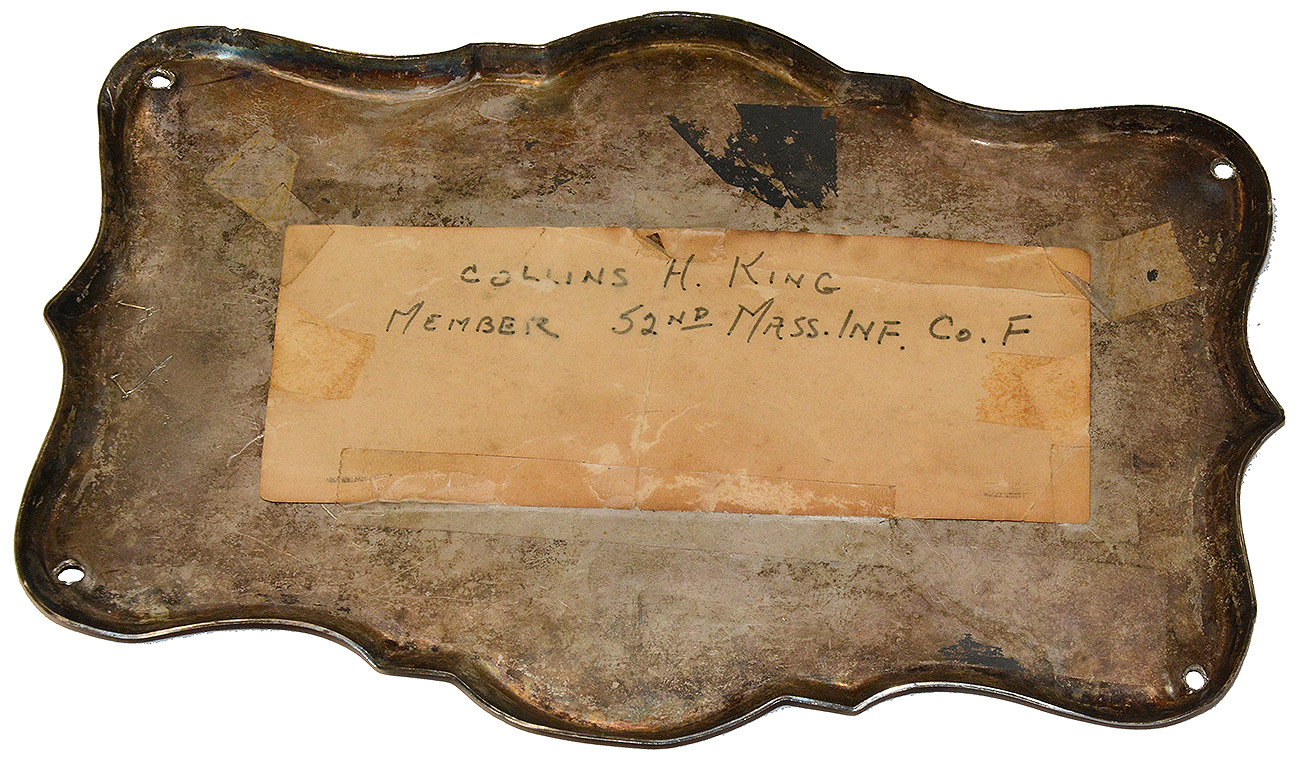 COLLINS H. KING
MEMBER 52ND MASS. INF. CO. F